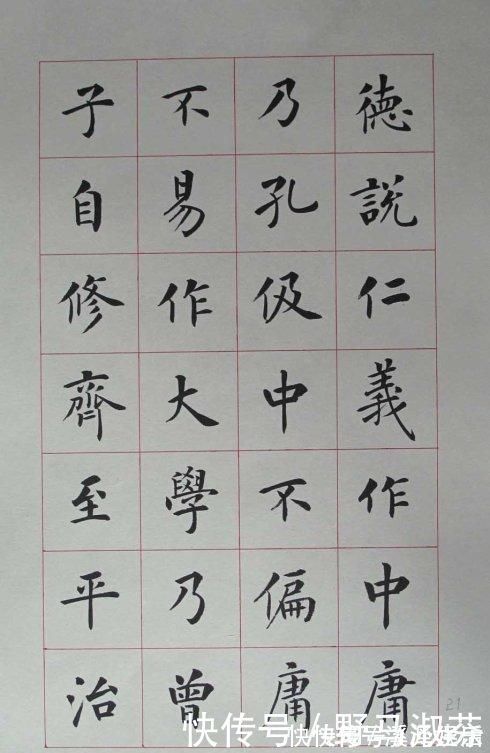 德說仁義作中庸
乃孔伋中不偏庸
不易作大學乃曾
子自修齊至平治
21
快传号/野马淑芬